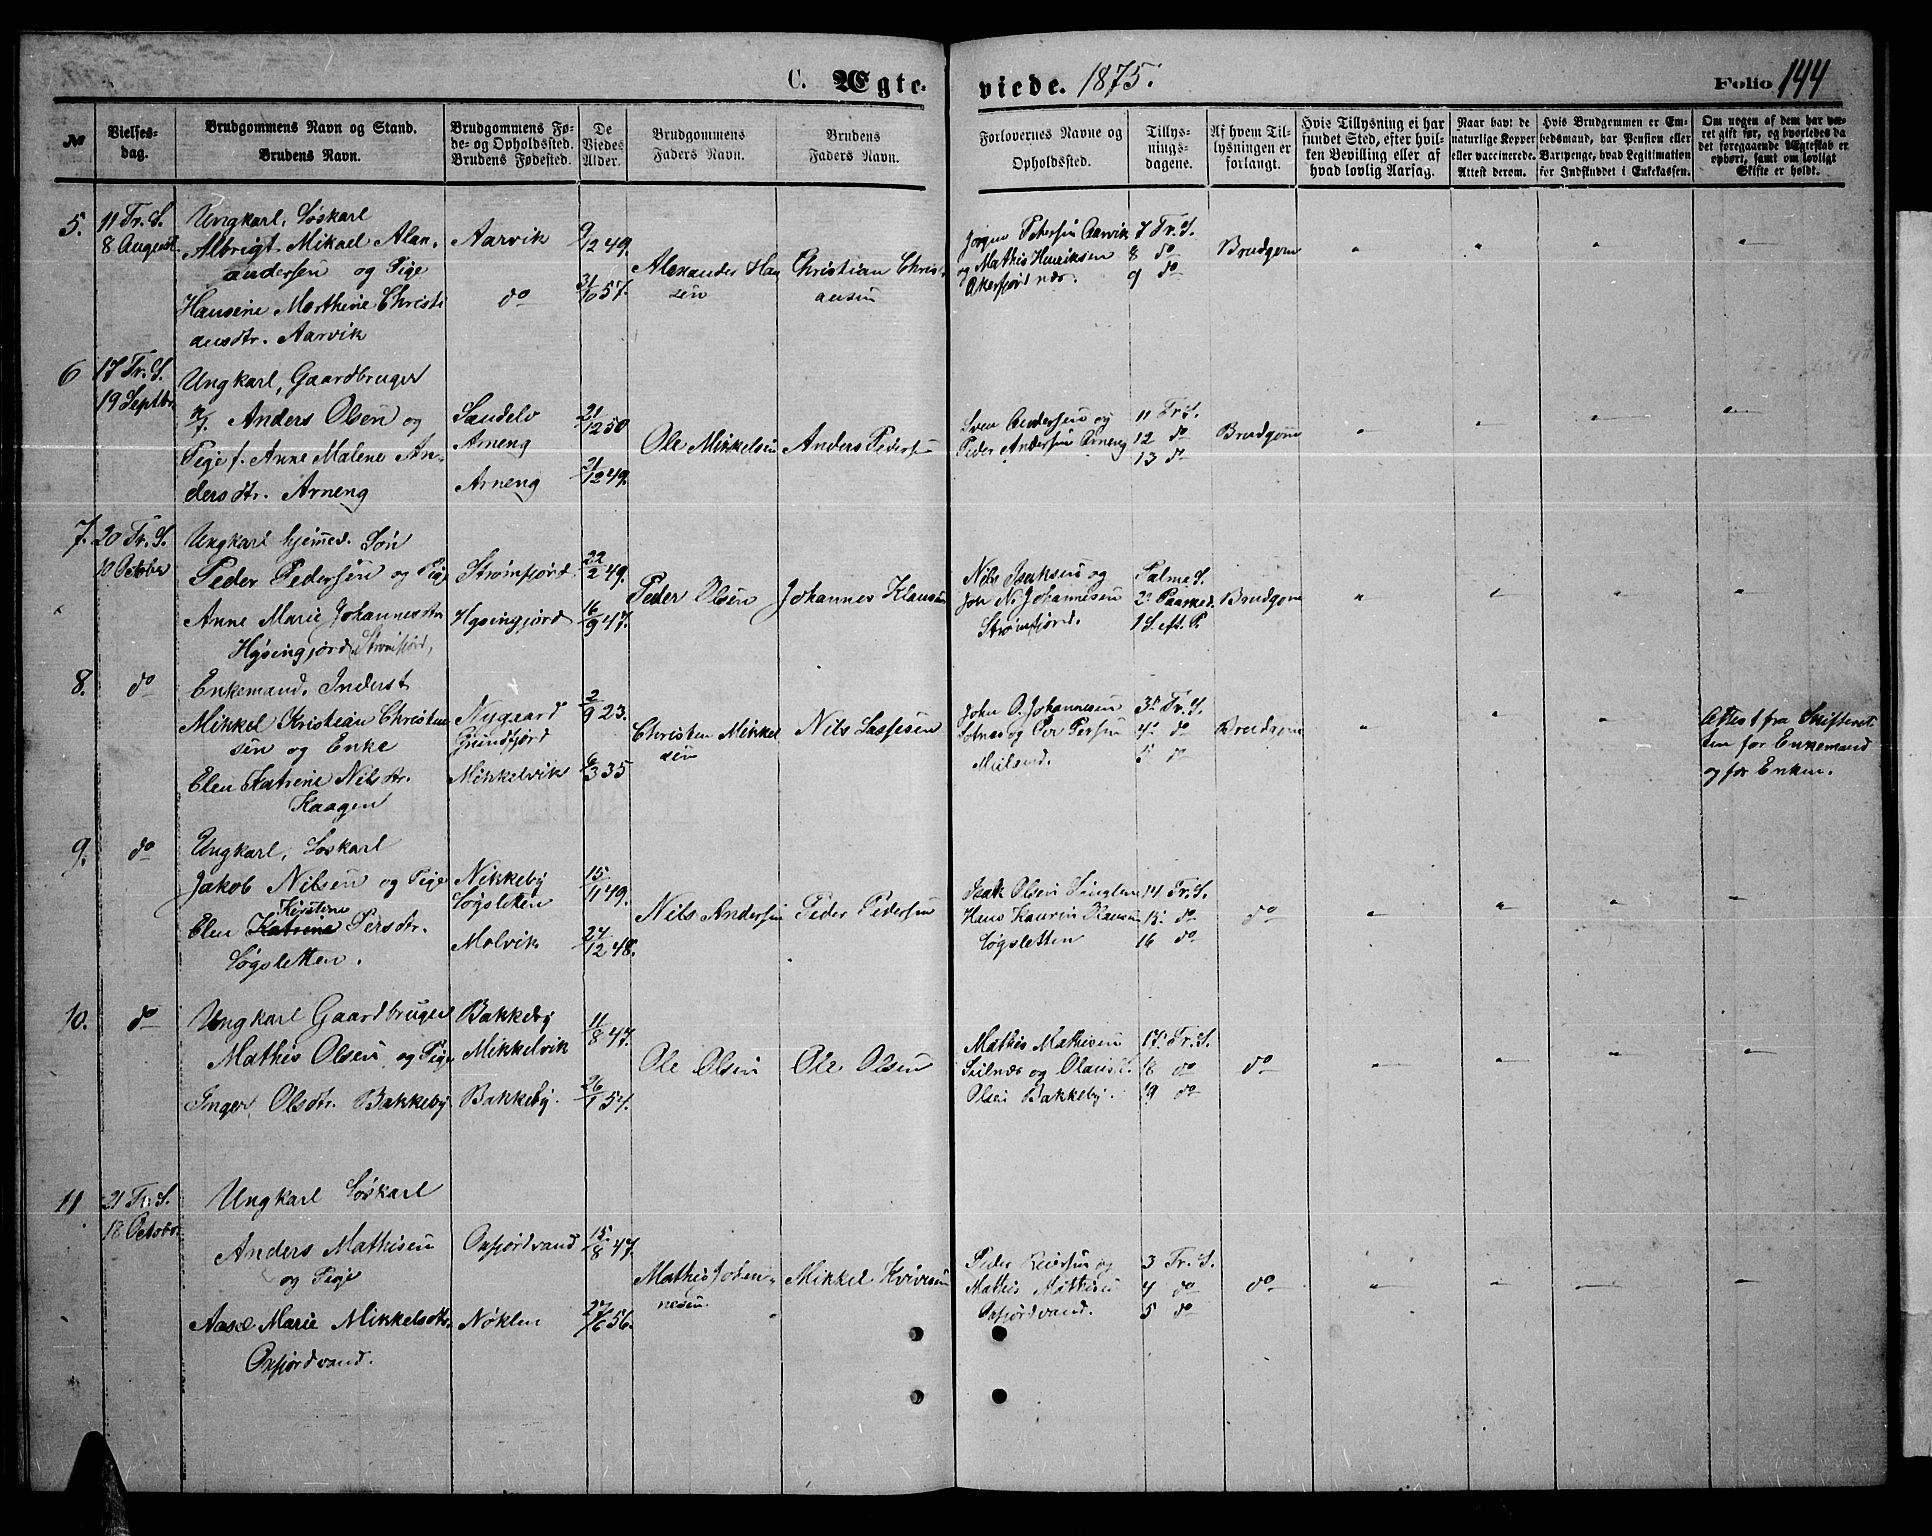 C. Ægte-
viede. 1875.
Folio 144
№
Vielses-
dag.
Brudgommens Navn og Stand.
Brudens Navn.
Brudgommens Fø-
de- og Opholdssted.
Brudens Fødested.
De
Viedes
Alder.
Brudgommens
Faders Navn.
Brudens
Faders Navn.
Forlovernes Navne og
Opholdssted.
Tillys-
nings-
dagene.
Af hvem Til-
lysningen er
forlangt.
Hvis Tillysning ei har
fundet Sted, efter hvil-
ken Bevilling eller af
hvad lovlig Aarsag.
Naar havt de
naturlige Kopper
eller vaccinerede.
Attest derom.
Hvis Brudgommen er Em-
bedsmand, har Pension eller
Vartpenge, hvad Legitimation
for Indskuddet i Enkekassen.
Om nogen af dem har væ-
ret gift før, og hvorledes da
det foregaaende Ægteskab er
ophørt, samt om lovligt
Skifte er holdt.
5.
11 Tr. S.
8 August
Ungkarl, Løskarl
Albrigt Mikael Alex-
andersen og Pige
Hansine Marthine Christi
ansdtr. Aarvik
Aarvik
do
9/12 49.
31/10 57.
Alexander Han
sen
Christian Christi
ansen
Jørgen Petersen Aarvik
og Mathis Henriksen
Akerfjordnes.
7 Tr. S.
8 do
9 do
Brudgom
6
17 Tr. S.
19 Septbr.
Ungkarl, Gaardbruger
n/f. Anders Olsen og
Pige f. Anne Malene An-
dersdtr. Arneng
Sandelv
Arneng
Arneng
21/12 50
21/12 49.
Ole Mikkelsen
Anders Pedersen
Sven Andersen og
Peder Andersen Arneng
11 Tr. S.
12 do
13 do
Brudgom
7.
20 Tr. S.
10 October
Ungkarl hjemmed. Søn
Peder Pedersen og Pige
Anne Marie Johannesdtr
Hysingjord Strømfjord,
Strømfjord
Hysingjord
22/2 49.
16/9 47.
Peder Olsen
Johannes Klausen
Nils Isaksen og
Joh N. Johannesen
Strømfjord.
Palme S.
2. Paasked.
1 S. eft. P.
Brudgom
8.
do
Enkemand. Inderst
Mikkel Kristian Christen
sen og Enke
Elen Katrine Nilsdtr.
Kaagen
Nygaard
Grundfjord
Mikkelvik
2/9 23.
6/3 35
Christen Mikkel
sen
Nils Lassesen
John O. Johannesen
Sotnes og Per Persen
3. Tr. S.
4. do
5. do
Brudgom
Attest fra Skifteret-
ten for Enkemand
og for Enken.
9.
do
Ungkarl, Løskarl
Jakob Nilsen og Pige
Kirstine
Elen Katrine Persdtr.
Løgsletten.
Nikkeby
Løgsletten
Molvik
15/11 49.
24/12 48.
Nils Andersen
Peder Pedersen
Isak Olsen
Hans Kaurin Hansen
Løgsletten
14 Tr. S.
15. do
16 do
do
10.
do
Ungkarl Gaardbruger
Mathis Olsen og Pige
Inger Olsdtr. Bakkeby
Bakkeby
Mikkelvik
Bakkeby.
11/8 47.
26/1 54.
Ole Olsen
Ole Olsen
Mathis Mathisen
og Olaus
Olsen Bakkeby.
17. Tr. S.
18 do
19 do
do
11
21 Tr. S.
18 October
Ungkarl Løskarl
Anders Mathisen
og Pige
Aase Marie Mikkelsdtr.
Oxfjordvand.
Oxfjordvand
Nøklen
15/8 47.
27/6 56.
Mathis Johan-
nesen
Mikkel Kvivesen
Peder Reiersen og
Mathis Mathisen
Oxfjordvand.
3 Tr. S.
4 do
5 do
do